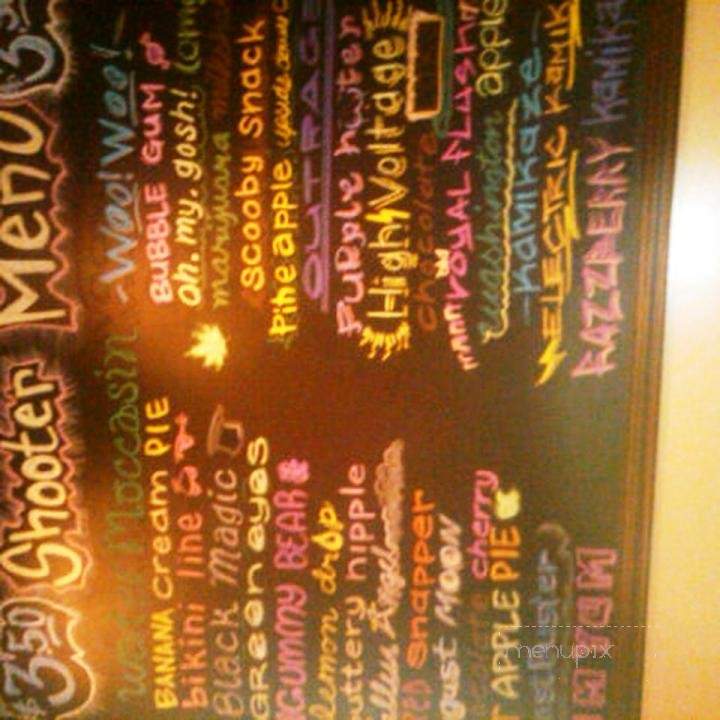 $3.50 Shooter Menu $3.5
Moccasin
BANANA CREAM PIE
bikini line
Black Magic
GREEN eyes
GUMMY BEAR
lemon drop
uttery nipple
llen Angel
RED SNAPPER
gust MOON
cherry
T APPLE PIE
buster
-Woo! Woo!-
BUBBLE GUM
oh. my. gosh! (omg
marijuana
SCOOBY SNACK
Pineapple upside
OUTRAGE
PURPLE HUNTER
High Voltage
chocolate
ROYAL FLUSH
washington apple
-Kamikaze-
ELECTRIC KAMIK
RAZZBERRY KAMIKA
menupix